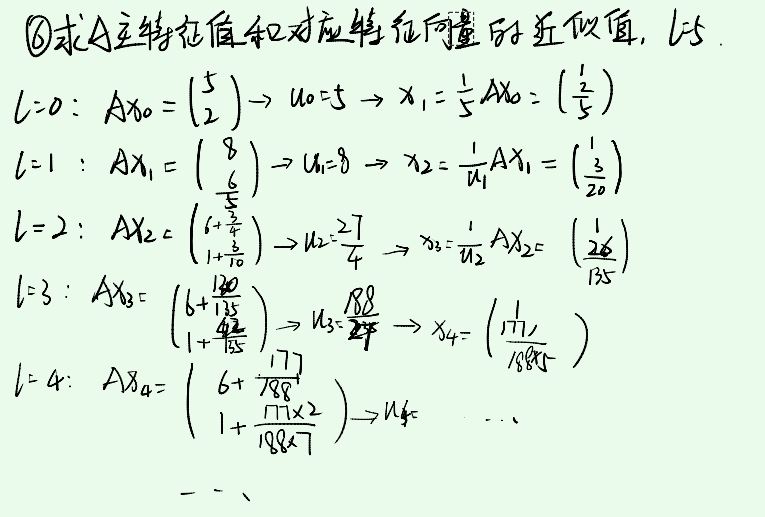 ⑥求A主特征值和对应特征向量的近似值, l=5.
l=0: Ax₀ = (5 2) → u₀=5 → x₁ = 1/5 Ax₀ = (1 2/5)
l=1: Ax₁ = (8 6/5) → u₁=8 → x₂ = 1/u₁ Ax₁ = (1 3/20)
l=2: Ax₂ = (6+3/4 1+3/10) → u₂=27/4 → x₃ = 1/u₂ Ax₂ = (1 26/135)
l=3: Ax₃ = (6+130/135 1+ /135) → u₃=188/27 → x₄ = (1 177/188×5)
l=4: Ax₄ = (6+177/188 1+177×2/188×7) → u₄= ...
---、